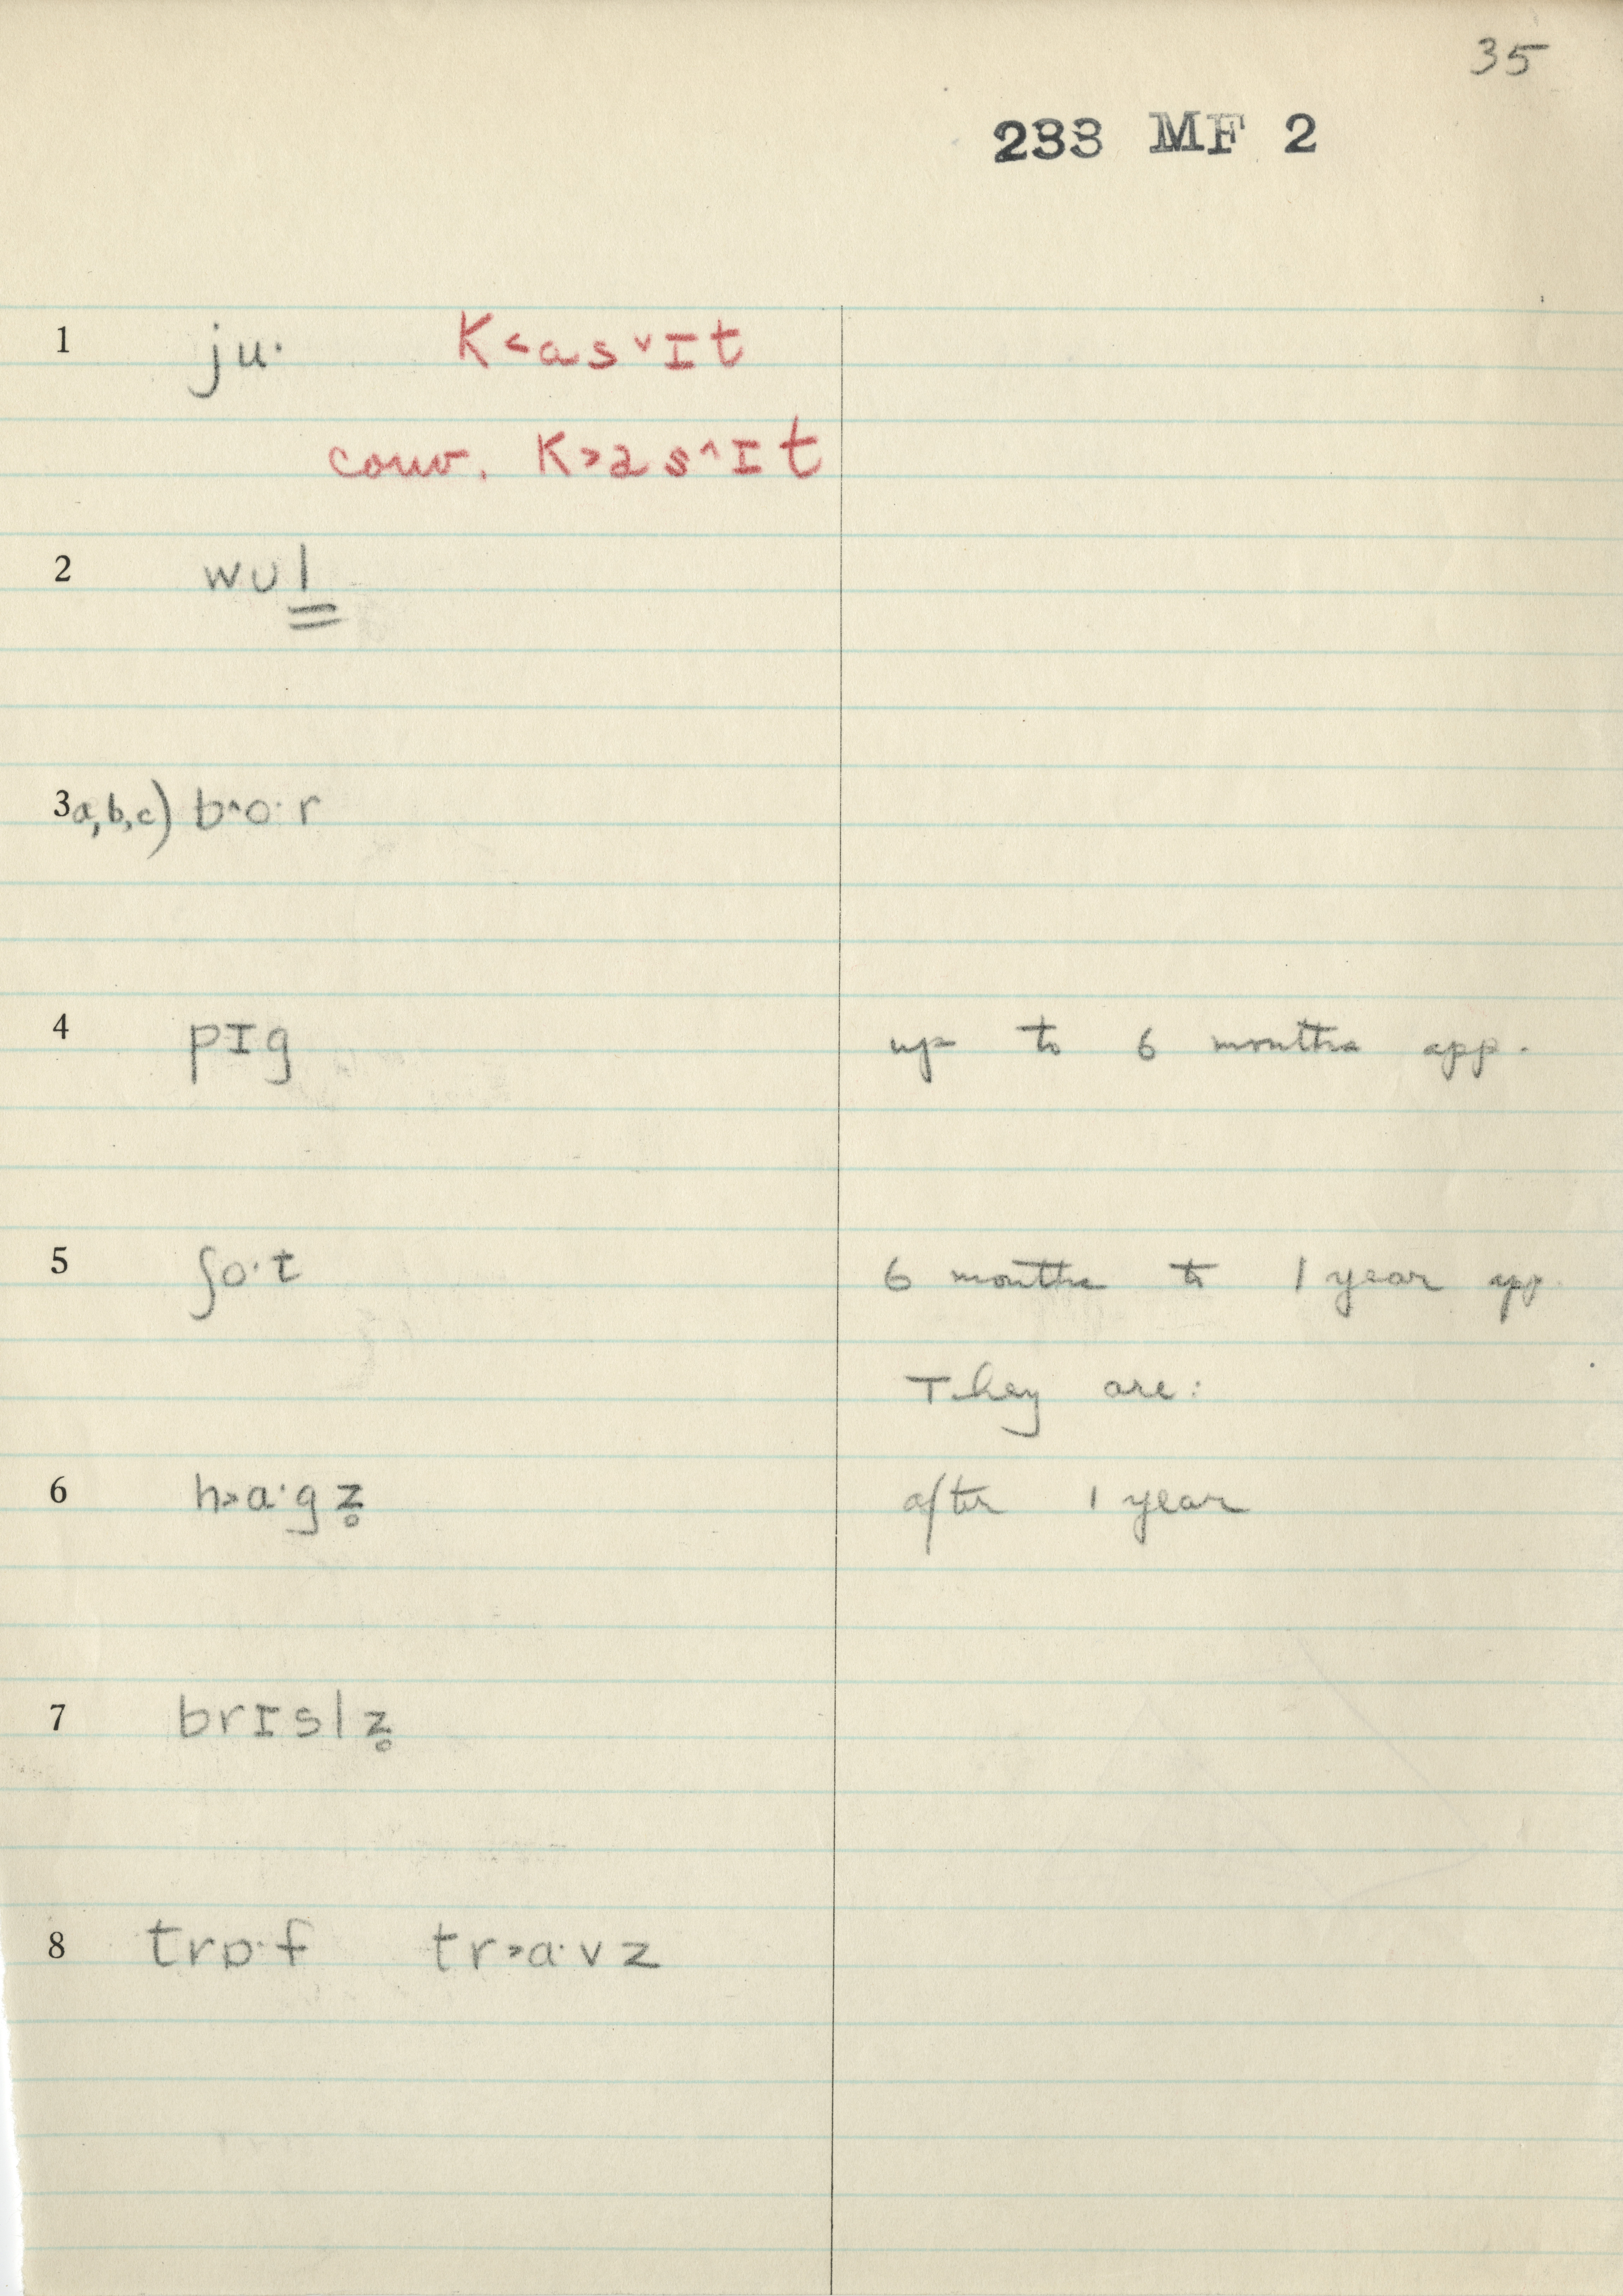 35
233 MF 2
1 ju· K˂as˅ɪt
conv. K˃as˄ɪt
2 wʊl
3a,b,c) b˄o·r
4 pɪg up to 6 months app.
5 ʃo·t 6 months to 1 year app.
They are:
6 h˃ɑ·gz̥ after 1 year
7 brɪslz̥
8 trɒ·f tr˃ɑ·vz